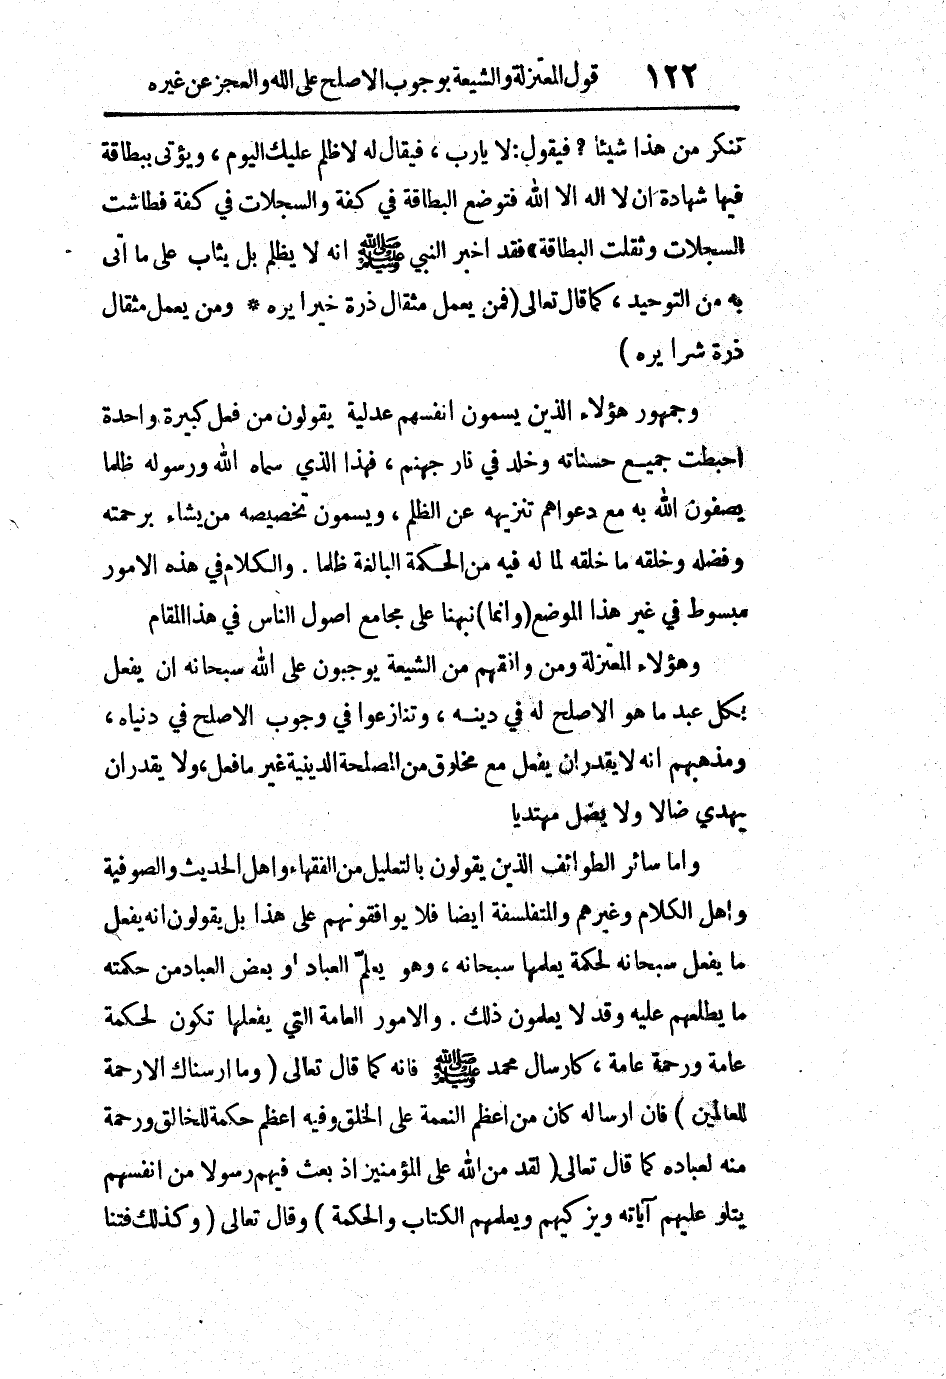 ١٢٢ قول المعتزلة والشيعة بوجوب الاصلح على الله والعجز عن غيره
تنكر من هذا شيئا ? فيقول: لا يارب ، فيقال له لاظلم عليك اليوم ، ويؤتى ببطاقة
فيها شهادة ان لا اله الا الله فتوضع البطاقة في كفة والسجلات في كفة فطاشت
السجلات وثقلت البطاقة» فقد اخبر النبي ﷺ انه لا يظلم بل يثاب على ما اتى
به من التوحيد ، كما قال تعالى (فمن يعمل مثقال ذرة خيرا يره * ومن يعمل مثقال
ذرة شرا يره )
وجمهور هؤلاء الذين يسمون انفسهم عدلية يقولون من فعل كبيرة واحدة
احبطت جميع حسناته وخلد في نار جهنم ، فهذا الذي سماه الله ورسوله ظلما
يصفون الله به مع دعواهم تنزيهه عن الظلم ، ويسمون تخصيصه من يشاء برحمته
وفضله وخلقه ما خلقه لما له فيه من الحكمة البالغة ظلما . والكلام في هذه الامور
مبسوط في غير هذا الموضع (وانما) نبهنا على مجامع اصول الناس في هذا المقام
وهؤلاء المعتزلة ومن وافقهم من الشيعة يوجبون على الله سبحانه ان يفعل
بكل عبد ما هو الاصلح له في دينه ، وتنازعوا في وجوب الاصلح في دنياه ،
ومذهبهم انه لا يقدر ان يفعل مع مخلوق من المصلحة الدينية غير ما فعل، ولا يقدر ان
يهدي ضالا ولا يضل مهتديا
واما سائر الطوائف الذين يقولون بالتعليل من الفقهاء واهل الحديث والصوفية
واهل الكلام وغيرهم والمتفلسفة ايضا فلا يوافقونهم على هذا بل يقولون انه يفعل
ما يفعل سبحانه لحكمة يعلمها سبحانه ، وهو يعلّم العباد او بعض العباد من حكمته
ما يطلعهم عليه وقد لا يعلمون ذلك . والامور العامة التي يفعلها تكون لحكمة
عامة ورحمة عامة ، كارسال محمد ﷺ فانه كما قال تعالى ( وما ارسناك الا رحمة
للعالمين ) فان ارساله كان من اعظم النعمة على الخلق وفيه اعظم حكمة للخالق ورحمة
منه لعباده كما قال تعالى( لقد من الله على المؤمنين اذ بعث فيهم رسولا من انفسهم
يتلو عليهم آياته ويزكيهم ويعلمهم الكتاب والحكمة ) وقال تعالى ( وكذلك فتنا